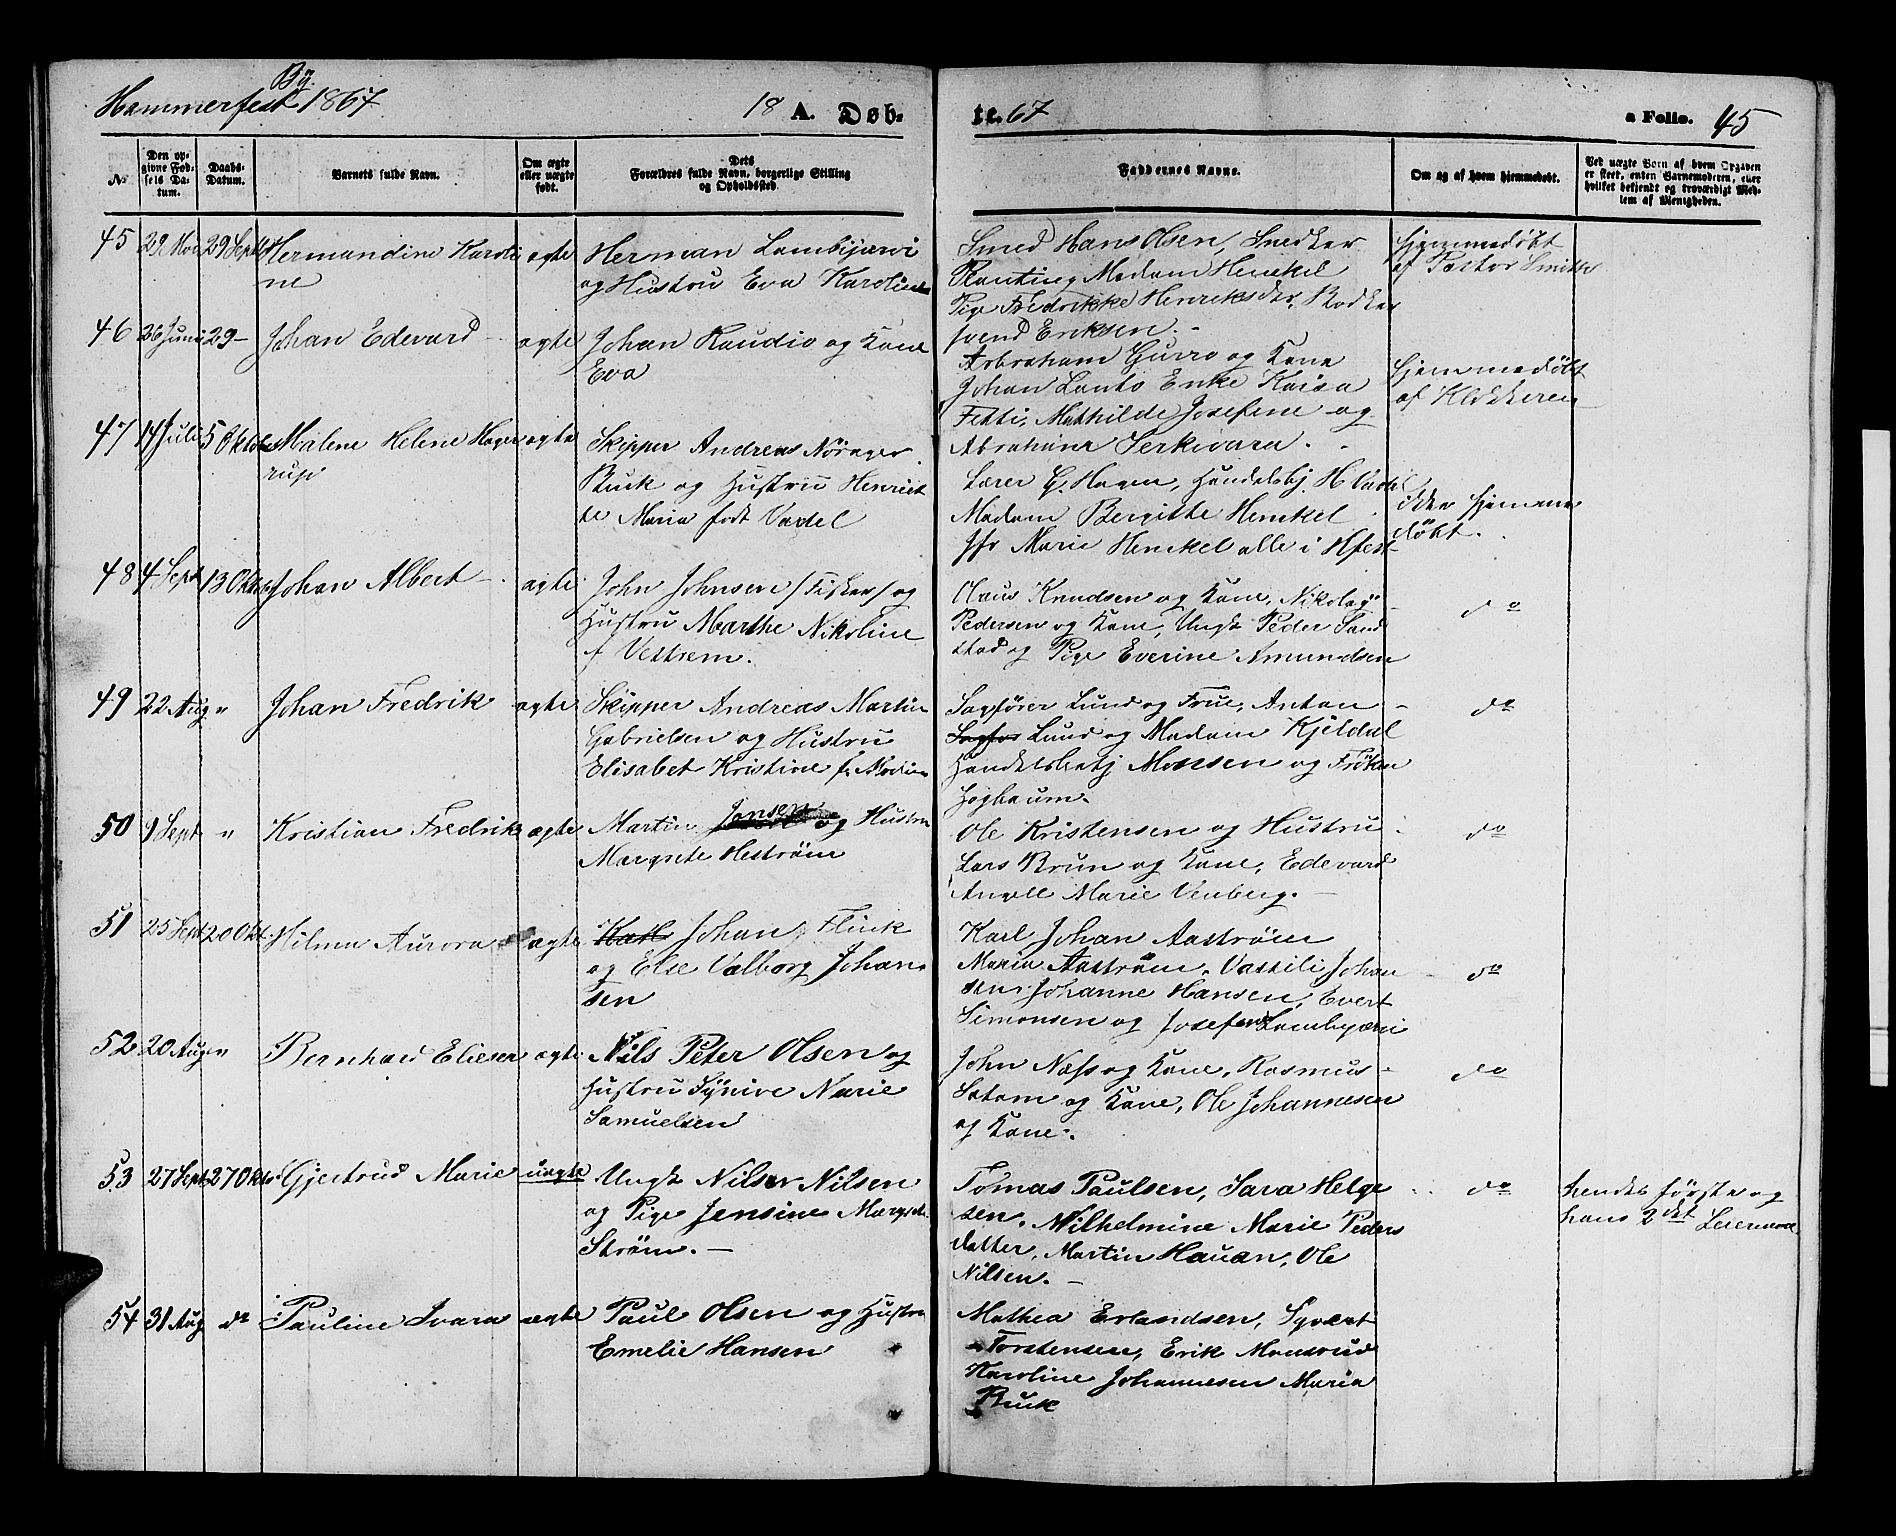 By.
Hammerfest 1867
18 A. Døb-
te. 67
a Folio. 45
No
Den op-
givne Fød-
sels Da-
tum.
Daabs-
Datum.
Barnets fulde Navn.
Om ægte
eller uægte
født.
Dets
Forældres fulde Navn, borgerlige Stilling
og Opholdssted.
Faddernes Navne.
Om og af hvem hjemmedøbt.
Ved uægte Børn af hvem Opgaven
er skeet, enten Barnemoderen, eller
hvilket bekjendt og troværdigt Med-
lem af Menigheden.
45 29 29 Sept Hermandine Karoli
ne
ægte
Herman Lombyjærvi
og Hustru Eva Karoline
Smed Hans Olsen, Snedker
Planting Madam Henkel
Pige Fredrikke Henriksdtr, Bødker
svend Eriksen.
Hjemmedøbt
af Pastor Smitt
46 26 Juni 29- Johan Edevard
ægte
Johan Raudio og Kone
Eva
Abraham Gurro og Kone
Johan Lanto Enke Kaisa
Fetti, Mathilde Josefine og
Abraham Serkivara.
hjemmedøbt
af Klokkeren
47 14 Juli 5 Oktober Malene Helene Hager
rup
ægte
Skipper Andreas Nörager
Buck og Hustru Henriet
te Maria født Vadel
Lærer G. Hagen, Handelsbj. H
Madam Bergitte Henckel
Jfr Marie Henckel alle i Hfest
ikke hjemme
døbt.
48 4 Sept 13 Oktbr Johan Albert
ægte
John Johnsen /Fisker/ og
Hustru Marthe Nikoline
f Vestrem.
Claus Knudsen og Kone, Nikolay
Pedersen og Kone, Ungk Peder Sand
stad og Pige Everine Amundsen
do
49 22 Aug " Johan Fredrik
ægte
Skipper Andreas Martin
Gabrielsen og Hustru
Elisabet Kristine f.
Sagfører Lund og Frue, Anton
Sagfør Lund og Madam Kjeldal
Handelsbetj Monsen og Frøken
Hogbaum.
do
50 9 Sept " Kristian Fredrik
ægte
Martin Jansen og Hustru
Margrete Hestrøm
Ole Kristensen og Hustru
Lars Brun og Kone, Edevard
Angell Marie Venberg.
do
51 25 Sept 20 Okt. Hilma Aurora
ægte
Karl Johan Flink
og Else Valborg Johan
sen
Karl Johan Aastrøm
Maria Aastrøm, Vassili Johan
sen. Johanne Hansen, Evert
Simonsen og Josefine Lombyjærvi
do
52 20 Aug " Bernhard Elieser
ægte
Nils Peter Olsen og
Hustru Synive Marie
Samuelsen
John Næss og Kone, Rasmus
Satam og Kone, Ole Johannesen
og Kone.
do
53 27 Sept 27 Oktbr Gjertrud Marie
uægte
Ungk Nilser Nilsen
og Pige Jensine Margrete
Strøm.
Tomas Paulsen, Sara Helge
sen. Wilhelmine Marie Peders
datter, Martin Hauan, Ole
Nilsen.
do
hendes første og
hans 2det Leiermaal
54 31 Aug do Pauline Ivara
ægte
Paul Olsen og Hustru
Emelie Hansen
Mathea Erlandsen, Syvert
Torstensen, Erik Monsrud
Karoline Johannesen Maria
Buck